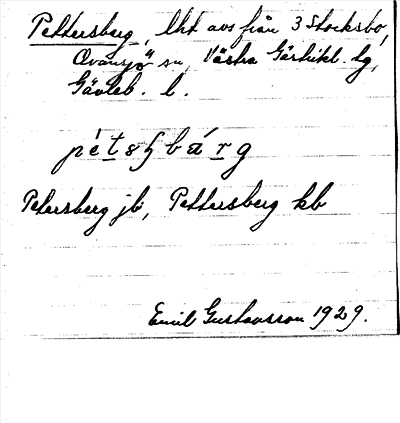 Pettersberg, lht avs från 3 Stocksbo,
Ovansjö sn, Västra Gästrikl. tg,
Gävleb. l.
pètsbárg
Petersberg jb, Pettersberg kb
Emil Gustavsson 1929.